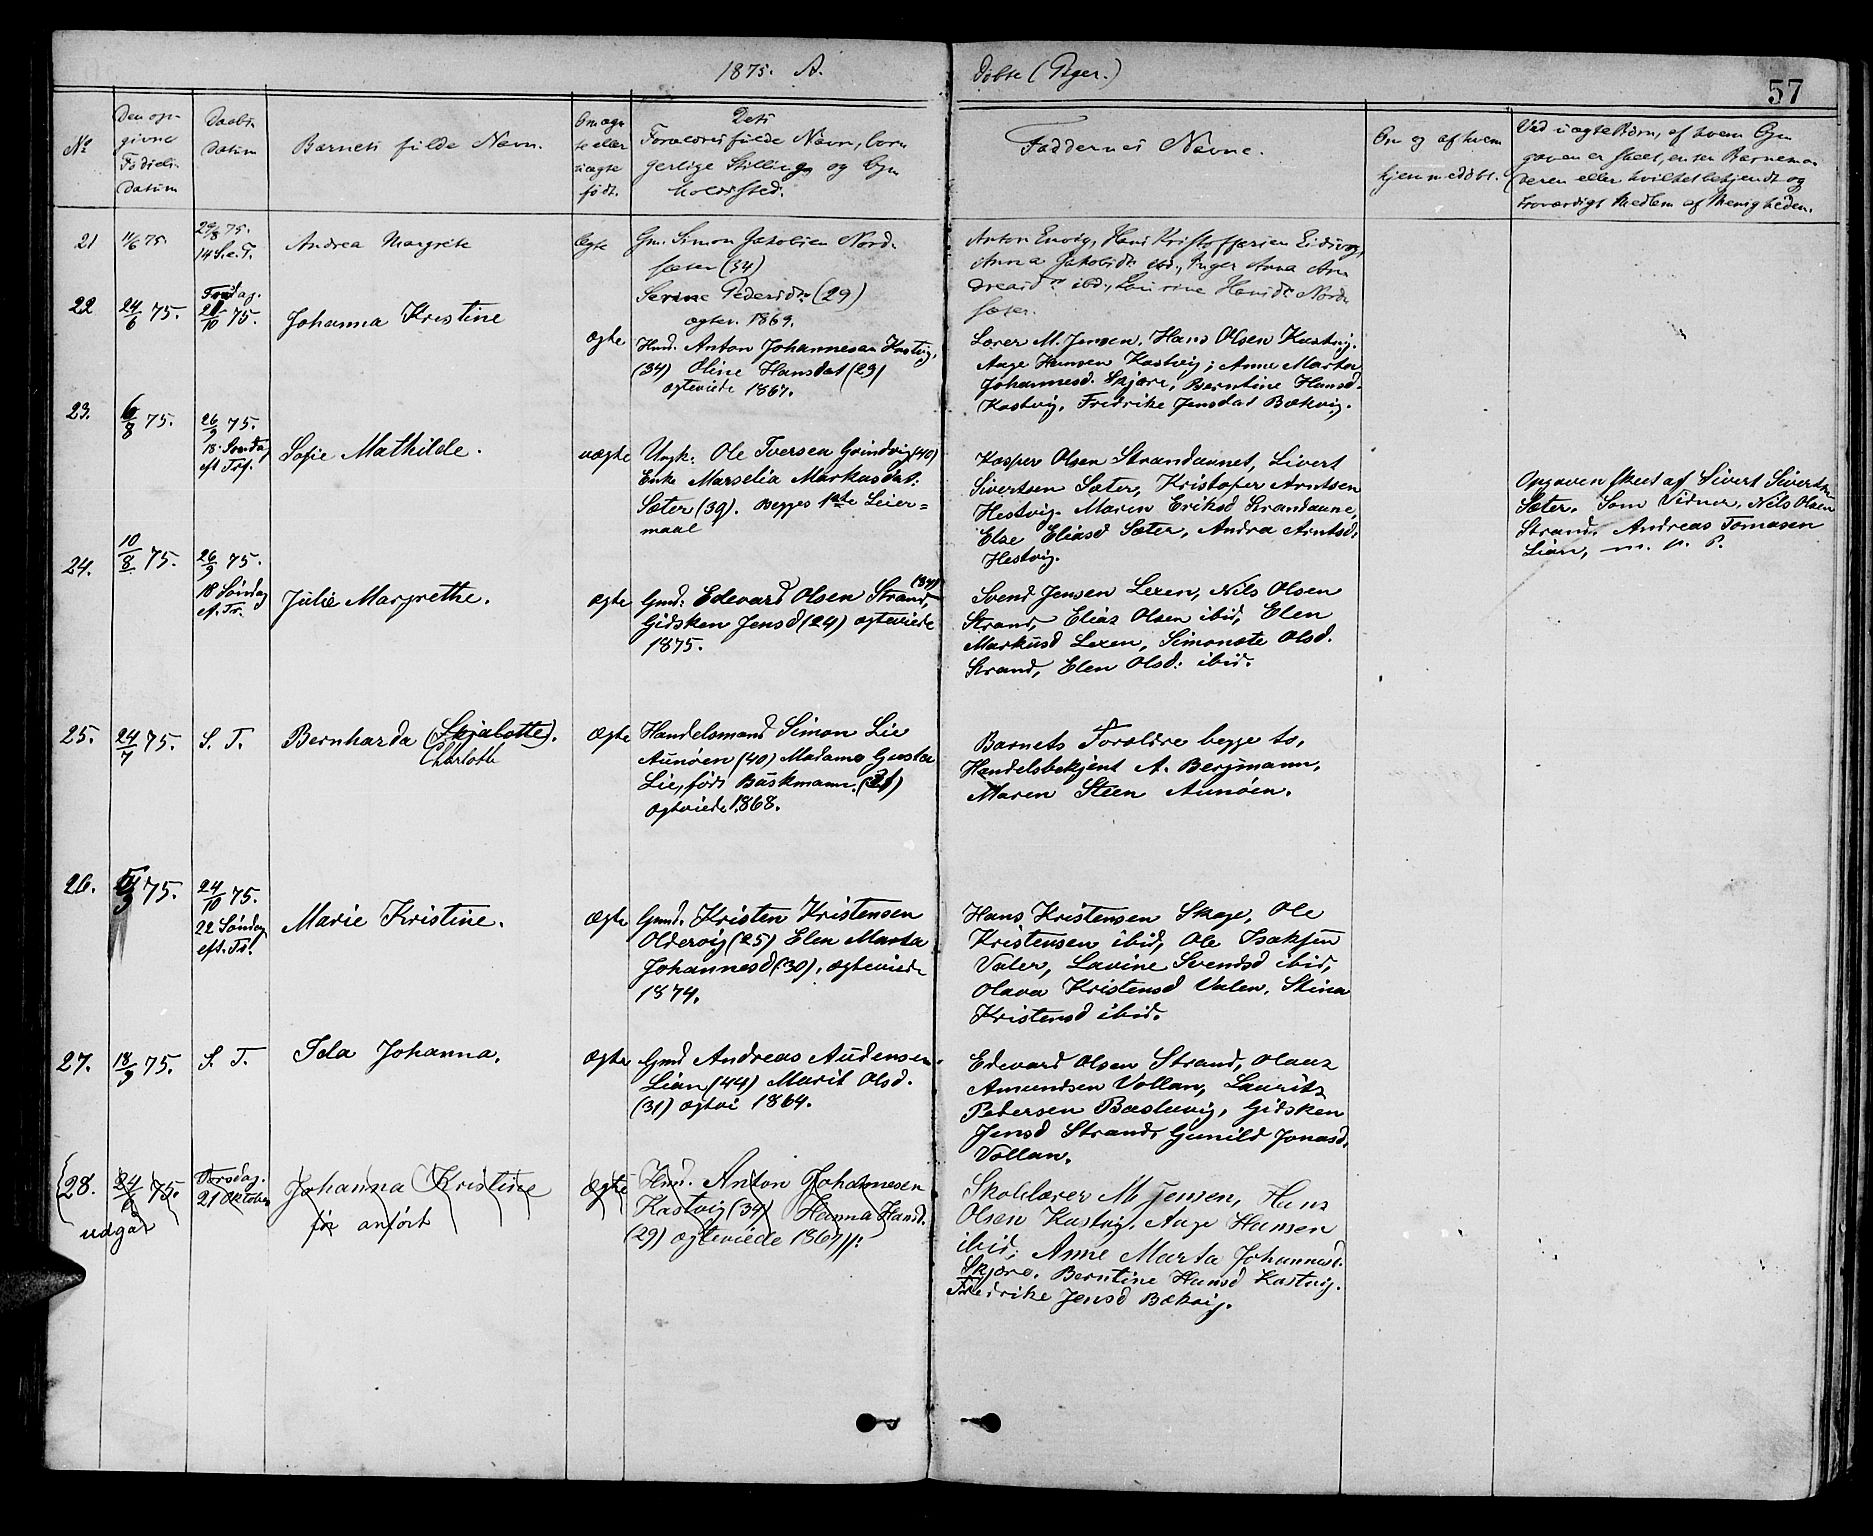 1875. A.
Døbte (Piger.)
57
No
Den op-
givne
Fødsels-
Datum
Daabs
Datum
Barnets fulde Navn.
Om ægte eller uægte født.
Dets Forældres fulde Navn, bor-
gerlige Stilling og
Faddernes Navne.
Om og af hvem
hjemmedøbt.
Ved uægte Børn, af hvem Op-
gaven er skeet, enten Barnemo-
deren eller hvilket bekjendt og
troværdigt Medlem af Menigheden.
21
11/6 75.
29/8 75.
14 S. e. T.
Andrea Margrete
Ægte
Gm. Simon Jakobsen Nord-
sæter (34)
Serine Pedersdtr (29)
ægtev. 1869.
Anton Hans Kristoffersen Eidsvog,
Anna Jakobsdtr ibd., Inger Anna An-
dreasdtr ibd., Laurine Hansdtr Nord-
sæter.
22
24/6 75.
Torsdag.
21/10 75.
Johanna Kristine
Ægte
Husm. Anton Johannesen Kastvig,
(34) Oline Hansdat (29)
ægteviede 1867.
Lærer M. Jensen, Hans Olsen Kastvig.
Aage Hansen Kastvig; Anne Marta
Johannesd. Skjære, Berntine Hansd.
Kastvig. Fredrike Jensdat Bækvig.
23.
6/8 75.
26/9 75.
18. Søndag
eft Trf.
Sofie Mathilde.
uægte
Ungk. Ole Iversen Grindvig (40)
Enke Marselia Markusdat.
Sæter (39). Begges 1ste Leier=
maal
Kasper Olsen Strandaunet, Sivert
Sivertsen Sæter, Kristofer Arntsen
Hestvig. Maren Eriksd Strandaune,
Else Eliasd Sæter, Andra Arntsd.
Hestvig.
Opgaven skeet af Sivert Sivertsen
Sæter. Som Vidner, Nils Olsen
Strand, Andreas Tomasen
Lian, m. p. P.
24.
10/8 75.
26/9 75.
18 Søndag
ef. Tr.
Julie Margrethe.
Ægte
Gmd: Edevard Olsen Strand, (34)
Gidsken Jensd (24) ægteviede
1875.
Svend Jensen Lexen, Nils Olsen
Strand, Elias Olsen ibid, Elen
Markusd Lexen, Simonete Olsd.
Strand, Elen Olsd. ibid.
25.
24/7 75.
S. T.
Bernharda (Skjalotte).
Charlotte
Ægte
Handelsmand Simon Lie
Aunøen (40) Madame Gusta
Lie, født Buskmann. (31)
Ægteviede 1868.
Barnets Forældre begge to,
Handelsbetjent A. Bergmann,
Maren Steen Aunøen.
26.
5/9 75.
24/10 75.
22 Søndag
eft. Tr.
Marie Kristine.
Ægte
Gmd. Kristen Kristensen
Oldervig (25) Elen Marta
Johannesd (30). ægteviede
1874.
Hans Kristensen Skage, Ole
Kristensen ibid, Ole Isaksen
Valer, Lavine Svendsd ibid,
Olava Kristensd Valen, Stina
Kristensd ibid.
27.
18/9 75.
S. T.
Ida Johanna.
Ægte
Gmd Andreas Audensen
Lian (44) Marit Olsd.
(31) ægtvi 1864.
Edevard Olsen Strand, Olaus
Amundsen Vollan, Laurits
Petersen Bastuvig, Gidsken
Jensd Strand, Gunild Jonasd.
Vollan.
28.
24/6 75.
udgår
Torsdag.
21 Oktober
Johanna Kristine
før anført
Ægte
Husm. Anton Johannesen
Kastvig (34) Hanna Hansd.
(29) ægteviede 1867
Skolelærer M Jensen, Hans
Olsen Kastvig. Aage Hansen
ibid, Anne Marta Johannesd.
Skjære. Berntine Hansd Kastvig.
Fredrike Jensd Bækvig.